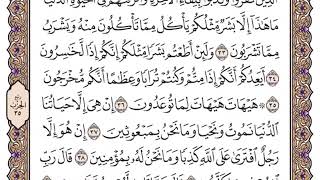 الَّذِينَ كَفَرُوا وَكَذَّبُوا بِلِقَاءِ الْآخِرَةِ وَأَتْرَفْنَاهُمْ فِي الْحَيَوٰةِ الدُّنْيَا
مَا هَٰذَا إِلَّا بَشَرٌ مِّثْلُكُمْ يَأْكُلُ مِمَّا تَأْكُلُونَ مِنْهُ وَيَشْرَبُ
مِمَّا تَشْرَبُونَ ٣٣ وَلَئِنْ أَطَعْتُم بَشَرًا مِّثْلَكُمْ إِنَّكُمْ إِذًا لَّخَٰسِرُونَ
٣٤ أَيَعِدُكُمْ أَنَّكُمْ إِذَا مِتُّمْ وَكُنتُمْ تُرَابًا وَعِظَٰمًا أَنَّكُم مُّخْرَجُونَ
٣٥ هَيْهَاتَ هَيْهَاتَ لِمَا تُوعَدُونَ ٣٦ إِنْ هِيَ إِلَّا حَيَاتُنَا
الدُّنْيَا نَمُوتُ وَنَحْيَا وَمَا نَحْنُ بِمَبْعُوثِينَ ٣٧ إِنْ هُوَ إِلَّا
رَجُلٌ افْتَرَىٰ عَلَى اللَّهِ كَذِبًا وَمَا نَحْنُ لَهُ بِمُؤْمِنِينَ ٣٨ قَالَ رَبِّ
الحزب
٣٥